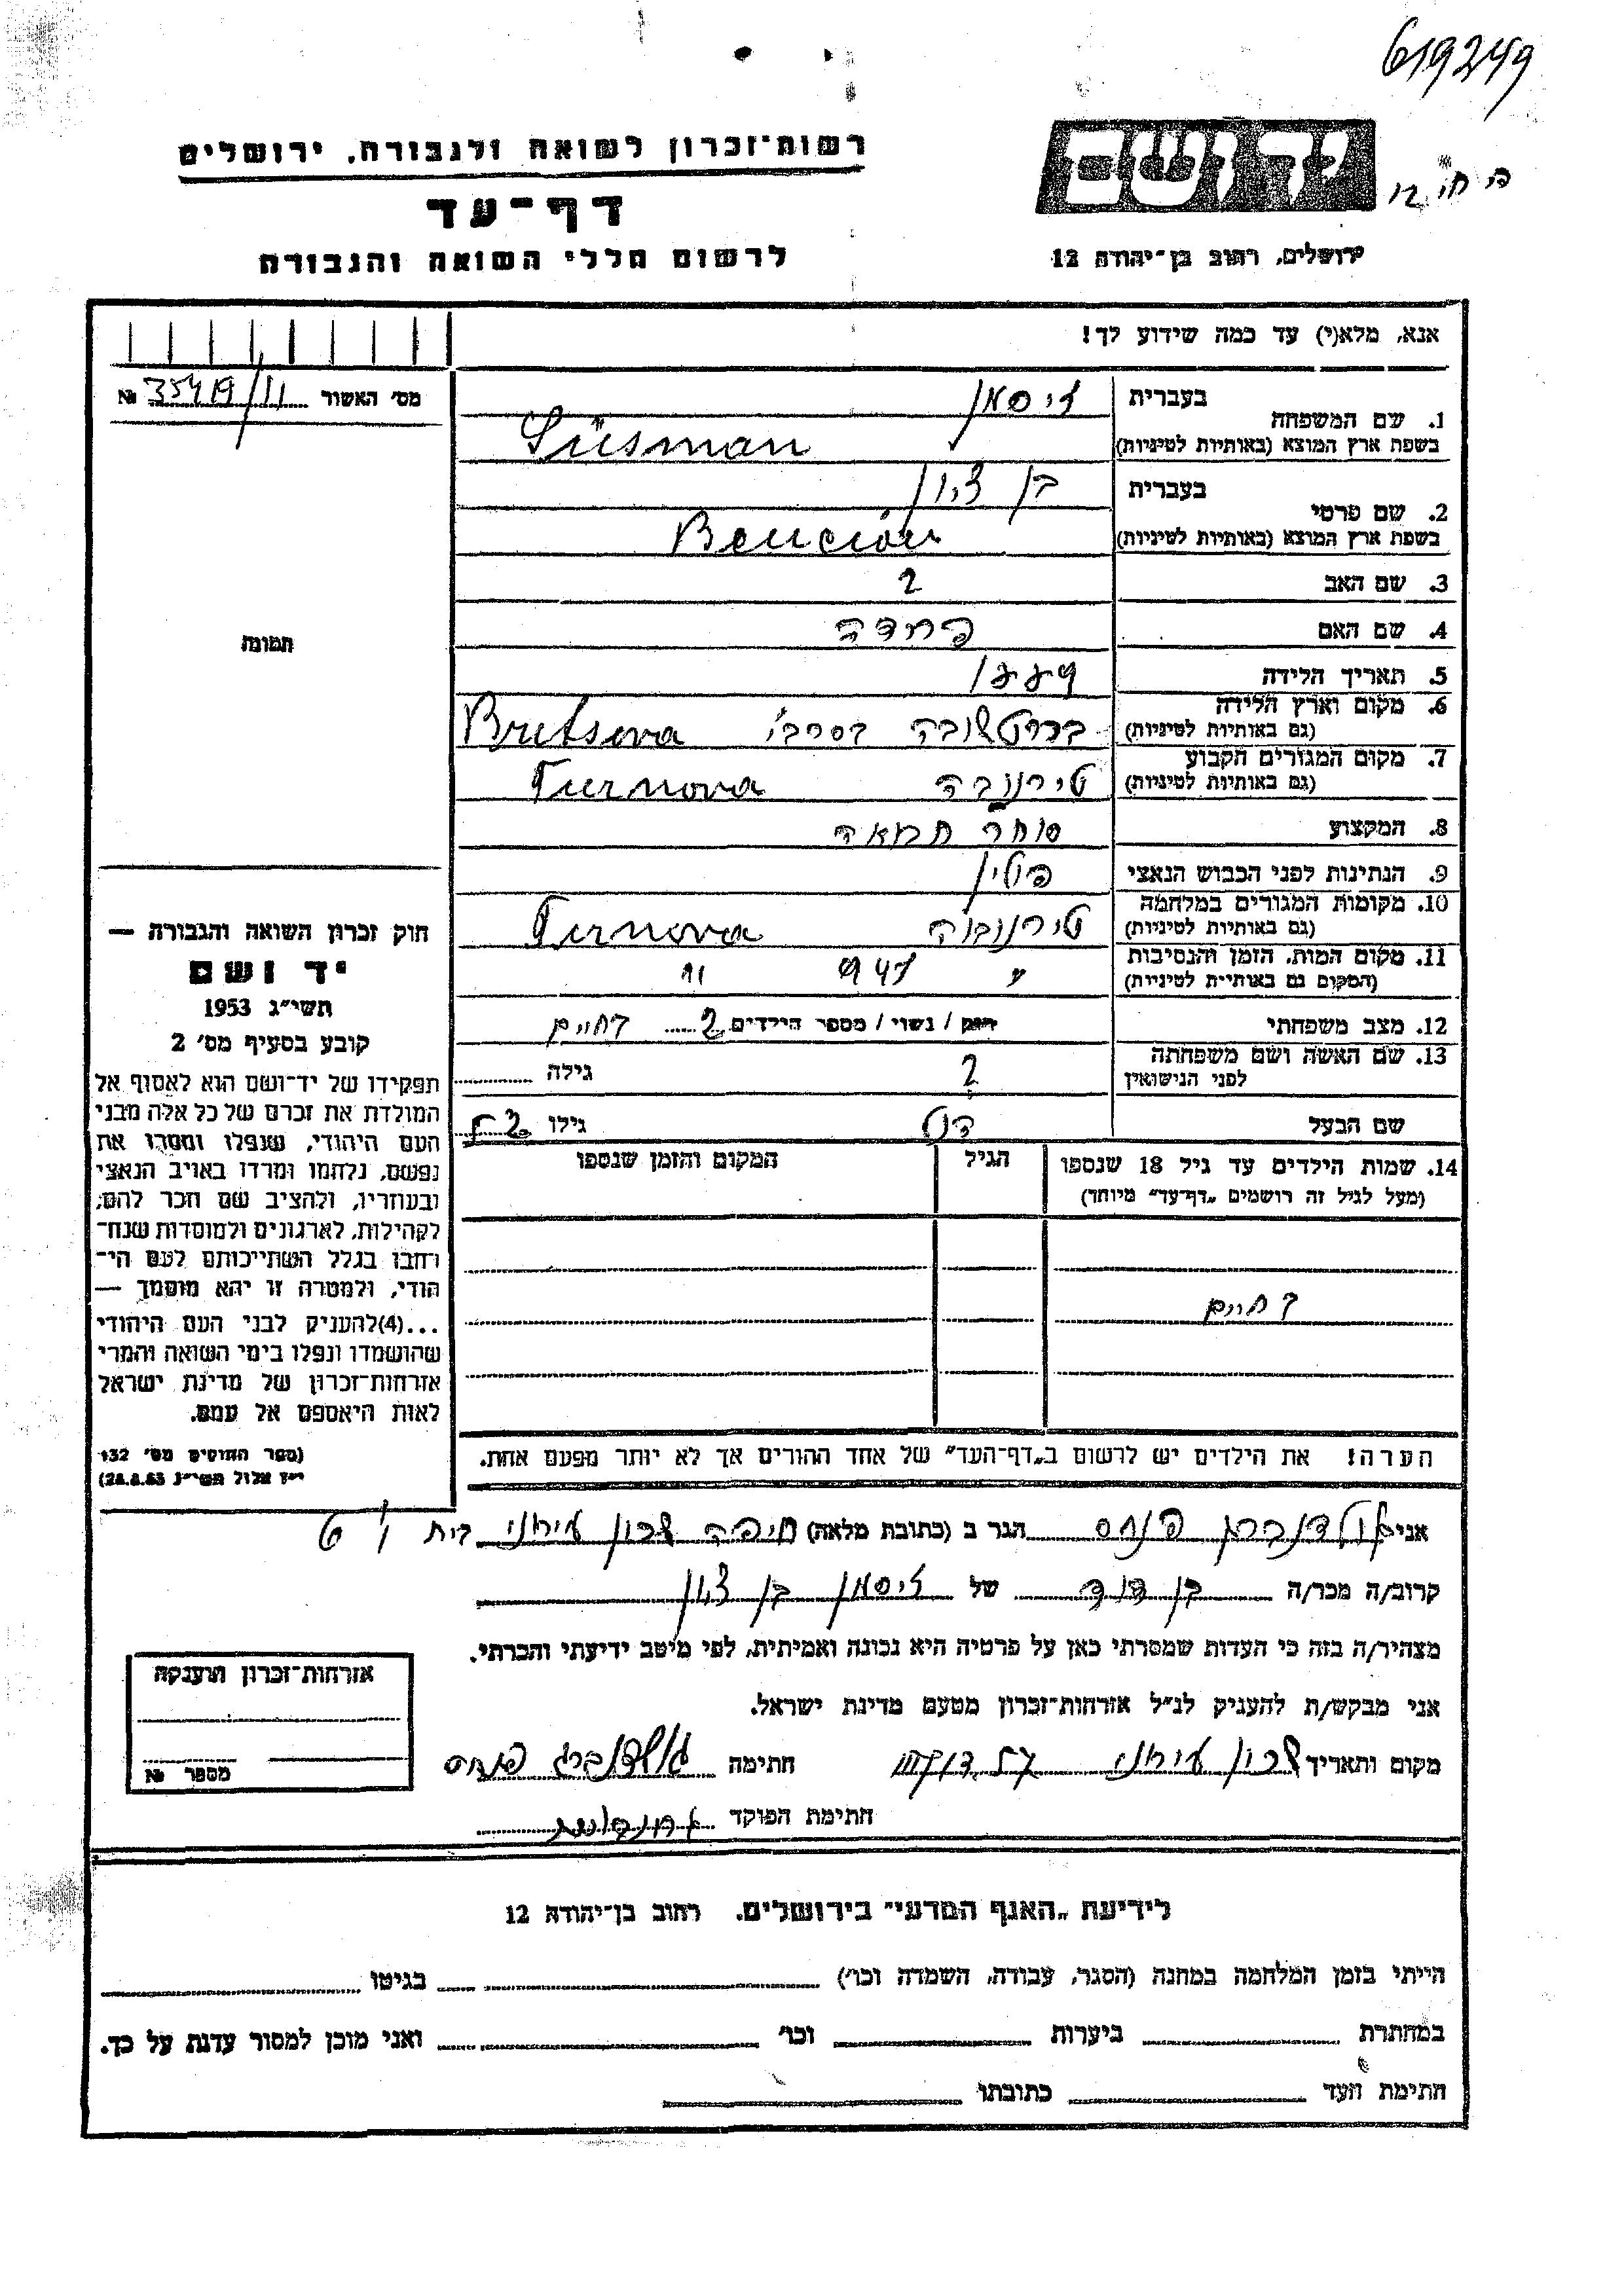 619249
רשות־זכרון לשואה ולגבורה, ירושלים
דף־עד
לרשום חללי השואה והגבורה
יד ושם
ירושלים, רחוב בן־יהודה 12
אנא, מלא(י) עד כמה שידוע לך!
מס׳ האשור № 35419/11
תמונה
1. שם המשפחה
בעברית זיסמן
בשפת ארץ המוצא (באותיות לטיניות) Süsman
2. שם פרטי
בעברית בן ציון
בשפת ארץ המוצא (באותיות לטיניות) Bencion
3. שם האב ?
4. שם האם
5. תאריך הלידה 1889
6. מקום וארץ הלידה
(גם באותיות לטיניות) Bretsova
7. מקום המגורים הקבוע
(גם באותיות לטיניות) טירנובה Turnova
8. המקצוע סוחר חמאה
9. הנתינות לפני הכבוש הנאצי
10. מקומות המגורים במלחמה
(גם באותיות לטיניות) טירנובה Turnova
11. מקום המות, הזמן והנסיבות
(המקום גם באותיית לטיניית)
12. מצב משפחתי רווק / נשוי / מספר הילדים 2 בחיים
13. שם האשה ושם משפחתה
לפני הנישואין ? גילה
שם הבעל גילו
14. שמות הילדים עד גיל 18 שנספו
(מעל לגיל זה רושמים „דף־עד״ מיוחד)
הגיל
המקום והזמן שנספו
בחיים
הערה! את הילדים יש לרשום ב„דף־העד״ של אחד ההורים אך לא יותר מפעם אחת.
חוק זכרון השואה והגבורה —
יד ושם
תשי״ג 1953
קובע בסעיף מס׳ 2
תפקידו של יד־ושם הוא לאסוף אל
המולדת את זכרם של כל אלה מבני
העם היהודי, שנפלו ומסרו את
נפשם, נלחמו ומרדו באויב הנאצי
ובעוזריו, ולהציב שם וזכר להם,
לקהילות, לארגונים ולמוסדות שנח־
רחבו בגלל השתייכותם לעם הי־
הודי, ולמטרה זו יהא מוסמך —
...(4) להעניק לבני העם היהודי
שהושמדו ונפלו בימי השואה והמרי
אזרחות־זכרון של מדינת ישראל
לאות היאספם אל עמם.
(ספר החוקים מס׳ 132
י״ז אלול תשי״ג 28.8.53)
אני גולדנברג פנחס הגר ב (כתובת מלאה) חיפה שכון עירוני בית
קרוב/ה מכר/ה בן דוד של זיסמן בן ציון
מצהיר/ה בזה כי העדות שמסרתי כאן על פרטיה היא נכונה ואמיתית, לפי מיטב ידיעתי והכרתי.
אני מבקש/ת להעניק לנ״ל אזרחות־זכרון מטעם מדינת ישראל.
מקום ותאריך שכון עירוני חתימה גולדנברג פנחס
חתימת הפוקד
אזרחות־זכרון הוענקה
מספר №
לידיעת „האגף המדעי״ בירושלים, רחוב בן־יהודה 12
הייתי בזמן המלחמה במחנה (הסגר, עבודה, השמדה וכו׳) בגיטו
במחתרת ביערות וכו׳ ואני מוכן למסור עדות על כך.
חתימת העד כתובתו